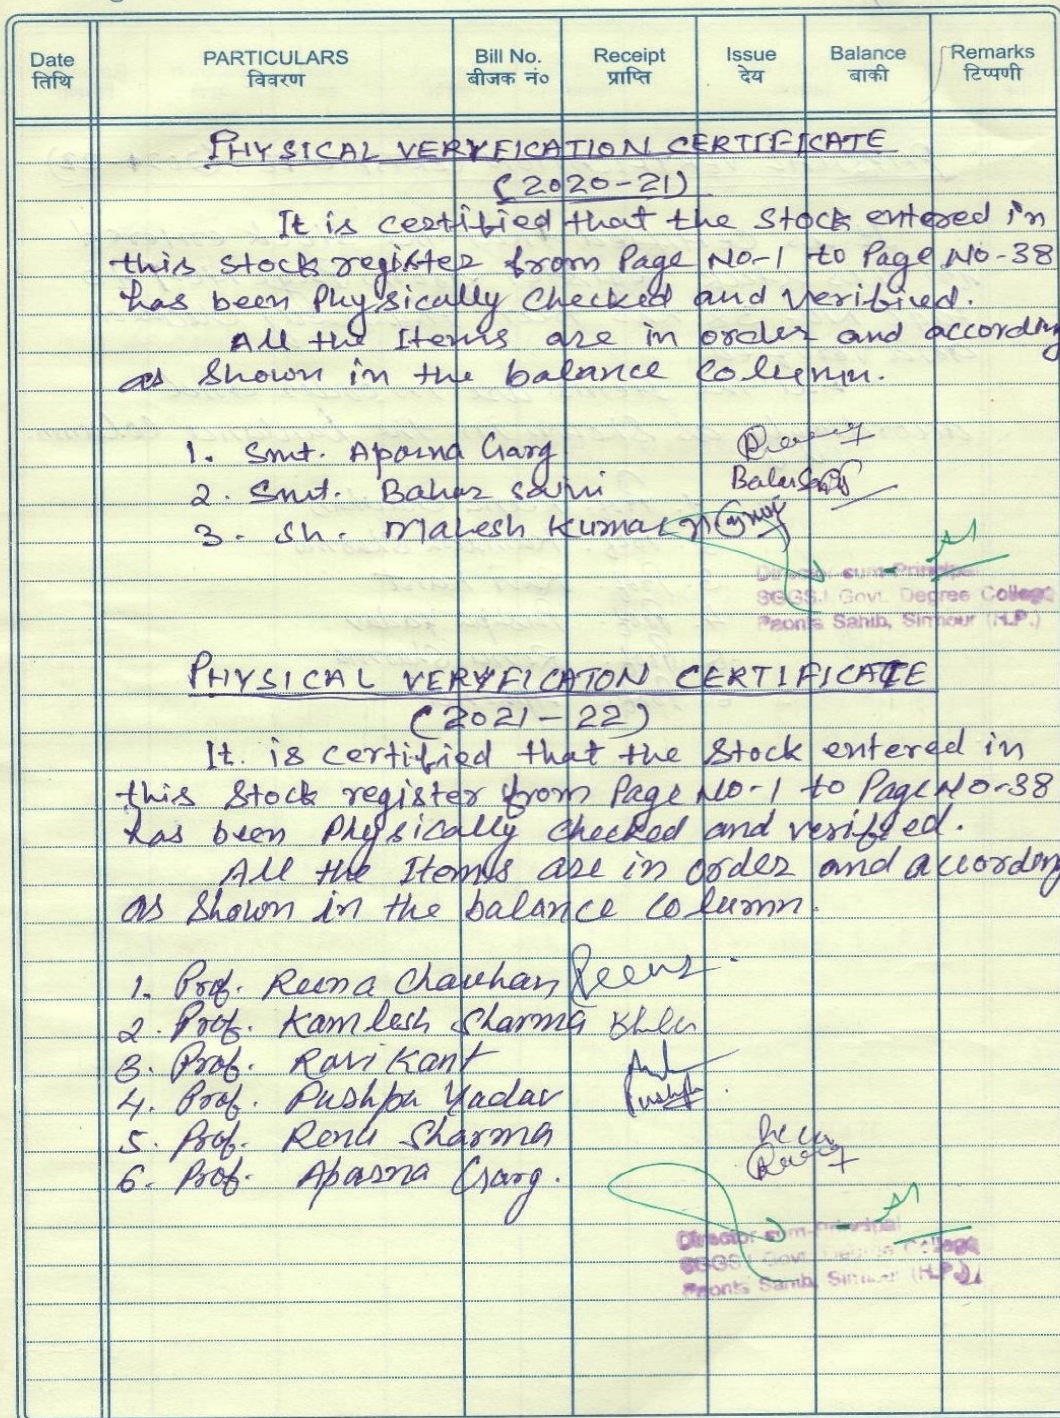 Date PARTICULARS Bill No. Receipt Issue Balance Remarks
तिथि विवरण बीजक नं० प्राप्ति देय बाकी टिप्पणी
PHYSICAL VERYFICATION CERTIFICATE
(2020-21)
It is certified that the Stock entered in
this stock register from Page No-1 to Page No-38
has been Physically checked and verified.
All the Items are in order and according
as Shown in the balance column.
1. Smt. Aparna Garg
2. Smt. Bahar Saini
3. Sh. Mahesh Kumar
Director cum-Principal
SGGSJ Govt. Degree College
Paonta Sahib, Sirmour (H.P.)
PHYSICAL VERYFICATON CERTIFICATE
(2021-22)
It. is certified that the Stock entered in
this Stock register from Page No-1 to Page No-38
has been Physically checked and verified.
All the Items are in order and according
as Shown in the balance column.
1. Prof. Reena Chauhan
2. Prof. Kamlesh Sharma
3. Prof. Ravi Kant
4. Prof. Pushpa Yadav Pushpa
5. Prof. Renu Sharma
6. Prof. Aparna Garg.
Director cum-Principal
SGGSJ Govt. Degree College
Paonta Sahib, Sirmour (H.P.)